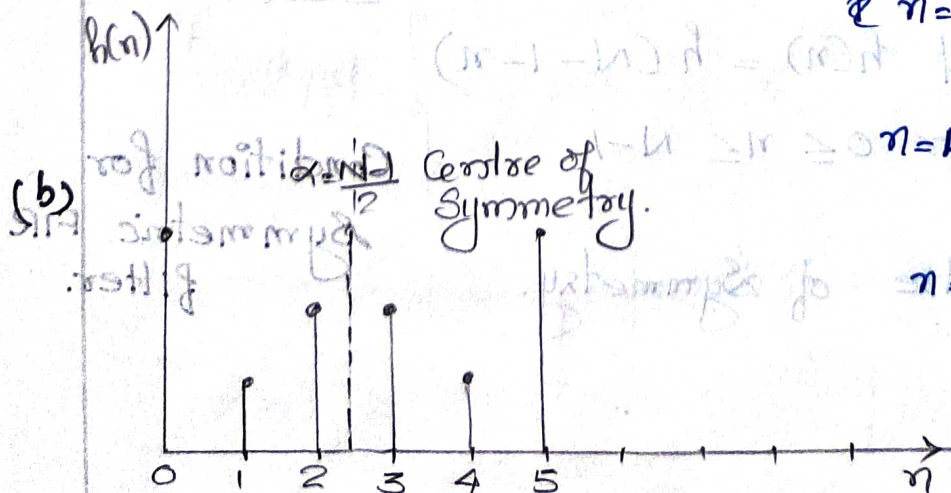 & n=
h(n)
n=1
(b)
Centre of
Symmetry.
n
0 1 2 3 4 5 n